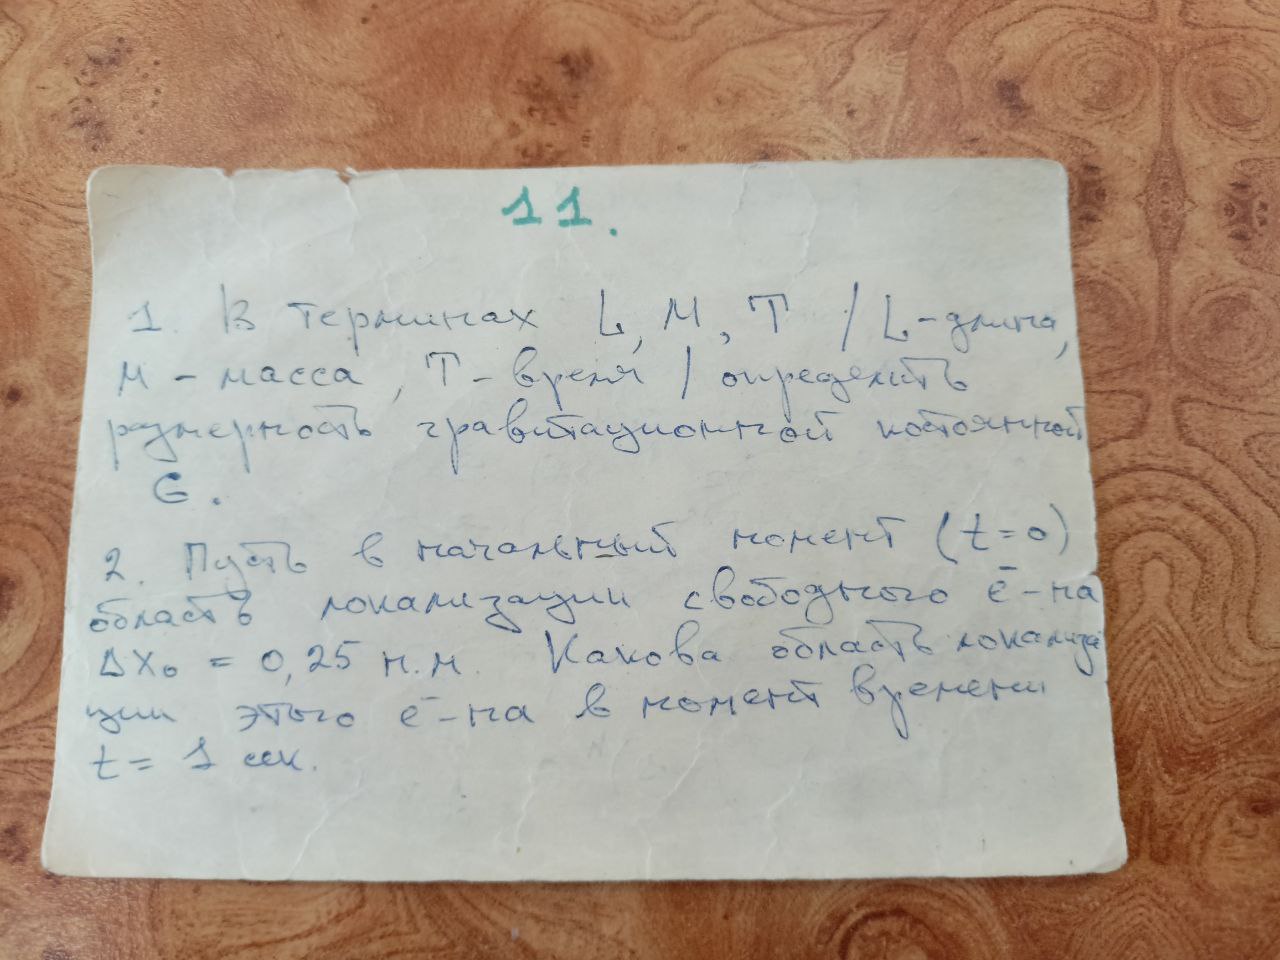 11.
1. В терминах L, M, T / L - длина,
M - масса, T - время / определить
размерность гравитационной постоянной
G.
2. Пусть в начальный момент (t = 0)
область локализации свободного е̄ - на
Δx₀ = 0,25 н.м. Какова область локализа
ции этого е̄ - на в момент времени
t = 1 сек.